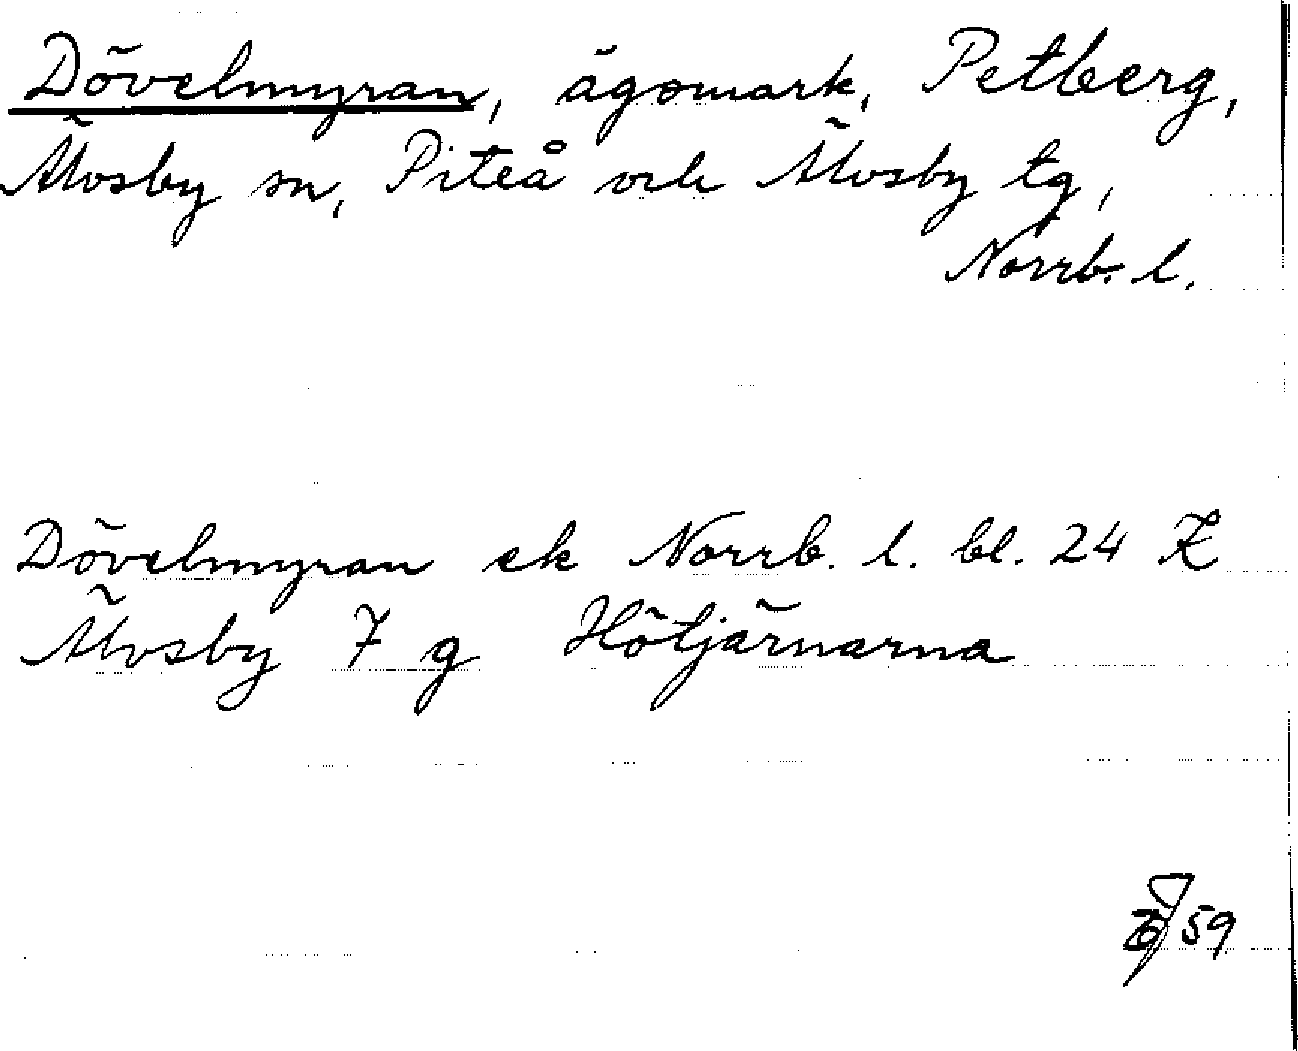 Dövelmyran, ägomark, Petberg,
Älvsby sn, Piteå och Älvsby tg,
Norrb. l.
Dövelmyran ek Norrb. l. bl. 24 K
Älvsby 7 g Hötjärnarna
59